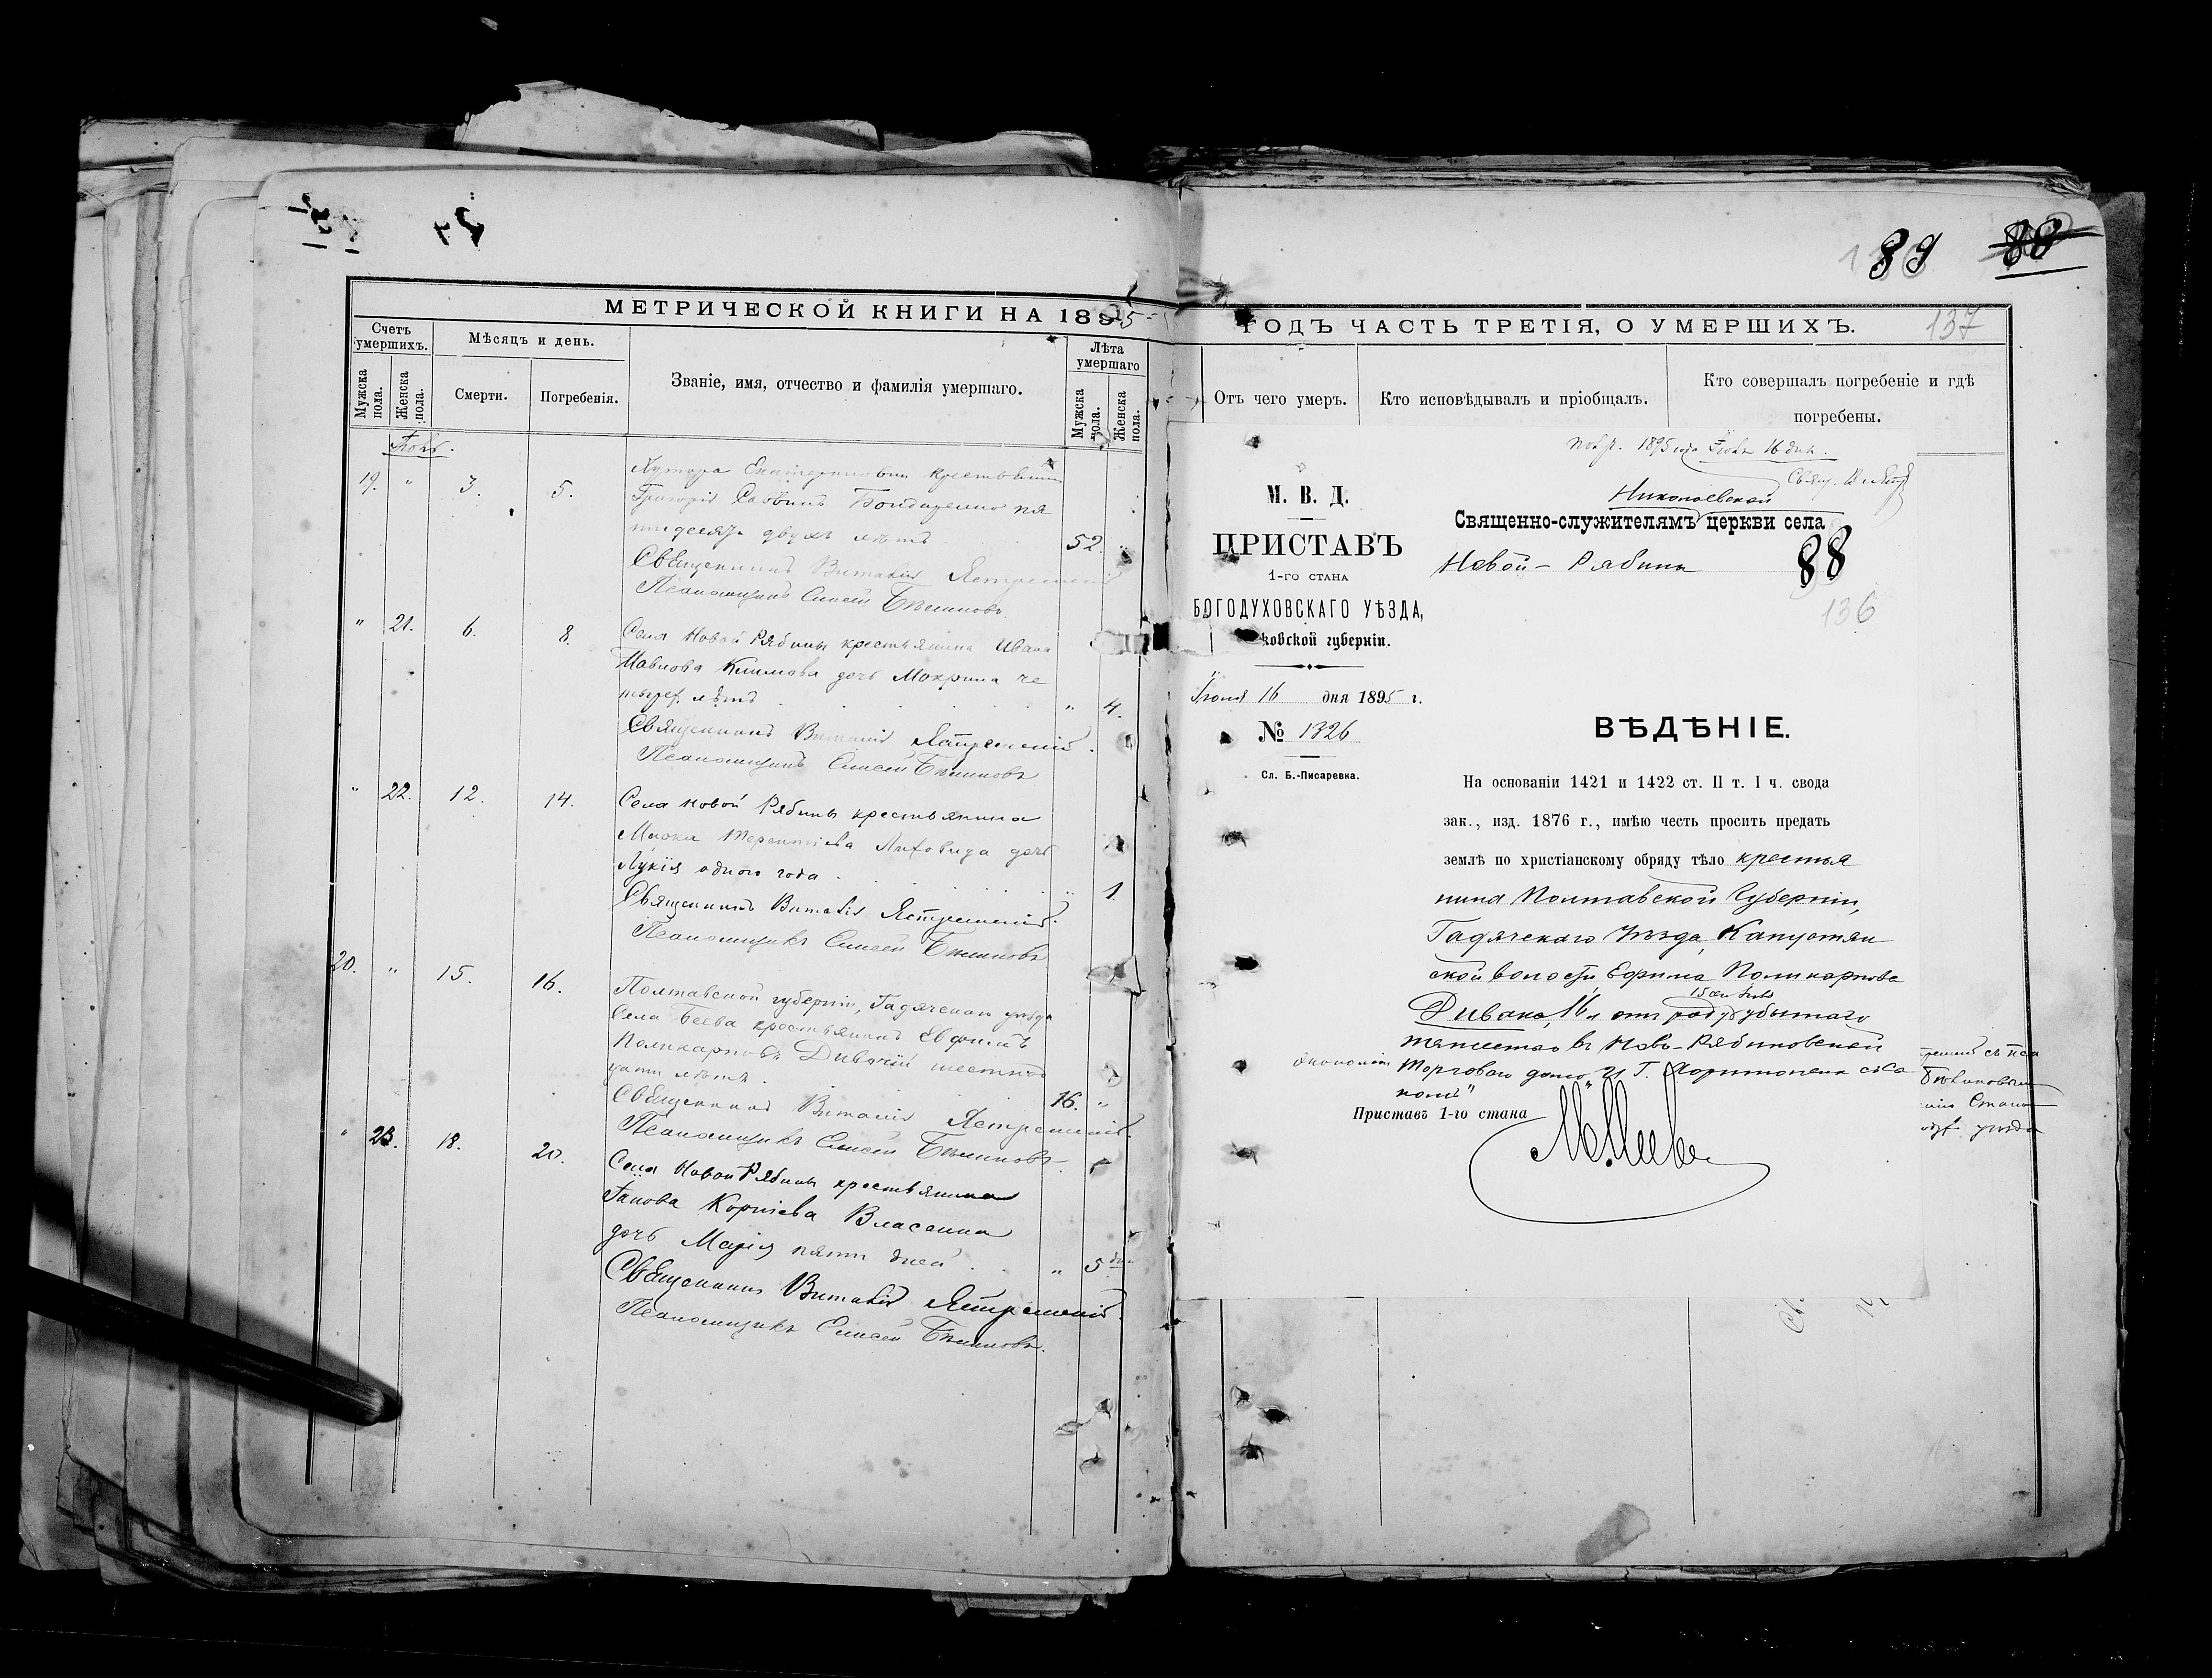 89 88
МЕТРИЧЕСКОЙ КНИГИ НА 1895
Счетъ умершихъ.
Мужска пола.
Женска пола.
Мѣсяцъ и день.
Смерти.
Погребенія.
Званіе, имя, отчество и фамилія умершаго.
Лѣта умершаго
Мужска пола.
Женска пола.
19. " 3. 5. Хутора крестьянинъ
Григорій Саввинъ Бондаренко пя
тидесяти двухъ лѣтъ 52. "
Священникъ Виталій Ястремскій
Псаломщикъ Елисей
" 21. 6. 8. Села Новой Рябины крестьянина Ивана
Павлова Климова дочь Макрина че
тырех лѣтъ " 4.
Священникъ Виталій Ястремскій.
Псаломщикъ Елисей
" 22. 12. 14. Села Новой Рябины крестьянина
Марка Терентіева Лиховида дочь
Лукія одного года " 1
Священникъ Виталій Ястремскій.
Псаломщикъ Елисей
20. " 15. 16. Полтавской губерніи, Гадячскаго уѣзда
села Беева крестьянинъ Евфимій
Поликарповъ Дивачій шестнад
цати лѣтъ. 16. "
Священникъ Виталій Ястремскій.
Псаломщикъ Елисей
" 23. 18. 20. Села Новой Рябины крестьянина
Іакова Корніева Власенка
дочь Марія пяти дней " 5 дн.
Священникъ Виталій Ястремскій.
Псаломщикъ Елисей
ГОДЪ ЧАСТЬ ТРЕТІЯ, О УМЕРШИХЪ. 137
Отъ чего умеръ.
Кто исповѣдывалъ и пріобщалъ.
Кто совершалъ погребеніе и гдѣ
погребены.
1895 года 16 дня.
М. В. Д.
ПРИСТАВЪ
1-го стана
БОГОДУХОВСКАГО УѢЗДА,
ковской губерніи.
Іюня 16 дня 1895 г.
№ 1326
Сл. Б.-Писаревка.
Николаевской
Священно-служителямъ церкви села
Новой-Рябины
88
136
ВѢДѢНІЕ.
На основаніи 1421 и 1422 ст. II т. I ч. свода
зак., изд. 1876 г., имѣю честь просить предать
землѣ по христіанскому обряду тѣло крестья
нина Полтавской Губерніи,
Гадячскаго Уѣзда, Капустян
ской волости, Ефима Поликарпова
Дивака, 16 л.
въ Ново-Рябиновской
экономіи Торговаго дома "И. Г. Харитоненко съ Сы
номъ"
Приставъ 1-го стана